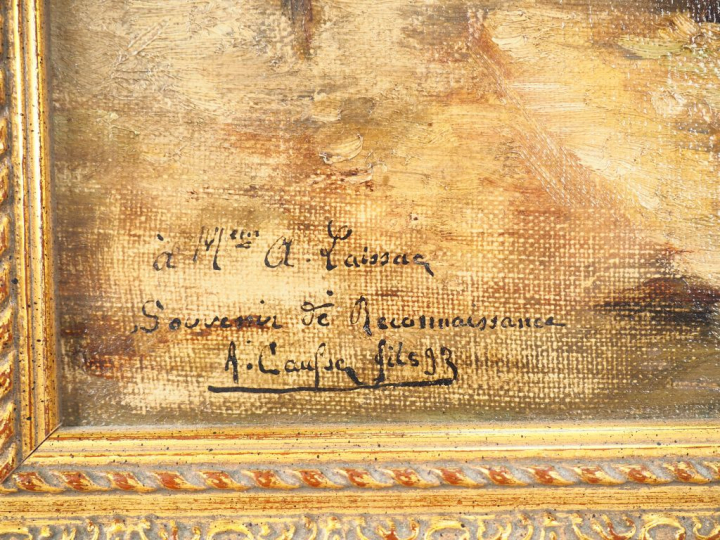 à Meur A. Laissac
Souvenir de Reconnaissance
A. Causse fils 93